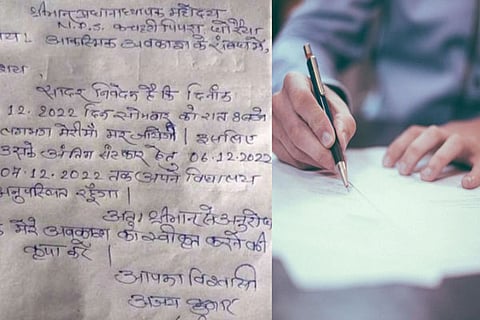 श्रीमान प्रधानाध्यापक महोदय
N.P.S. कचहरी पिपरा
: आकस्मिक अवकाश के संबंध में,
सादर निवेदन है कि दिनांक
12.2022 दिन सोमवार को रात 8 बजे
लगभग मेरी माँ मर जायेगी। इसलिए
उसके अंतिम संस्कार हेतु 06.12.2022
07.12.2022 तक अपने विद्यालय
अनुपस्थित रहूँगा।
अतः श्रीमान से अनुरोध
मेरे अवकाश को स्वीकृत करने की
कृपा करें।
आपका विश्वासी
अजय कुमार